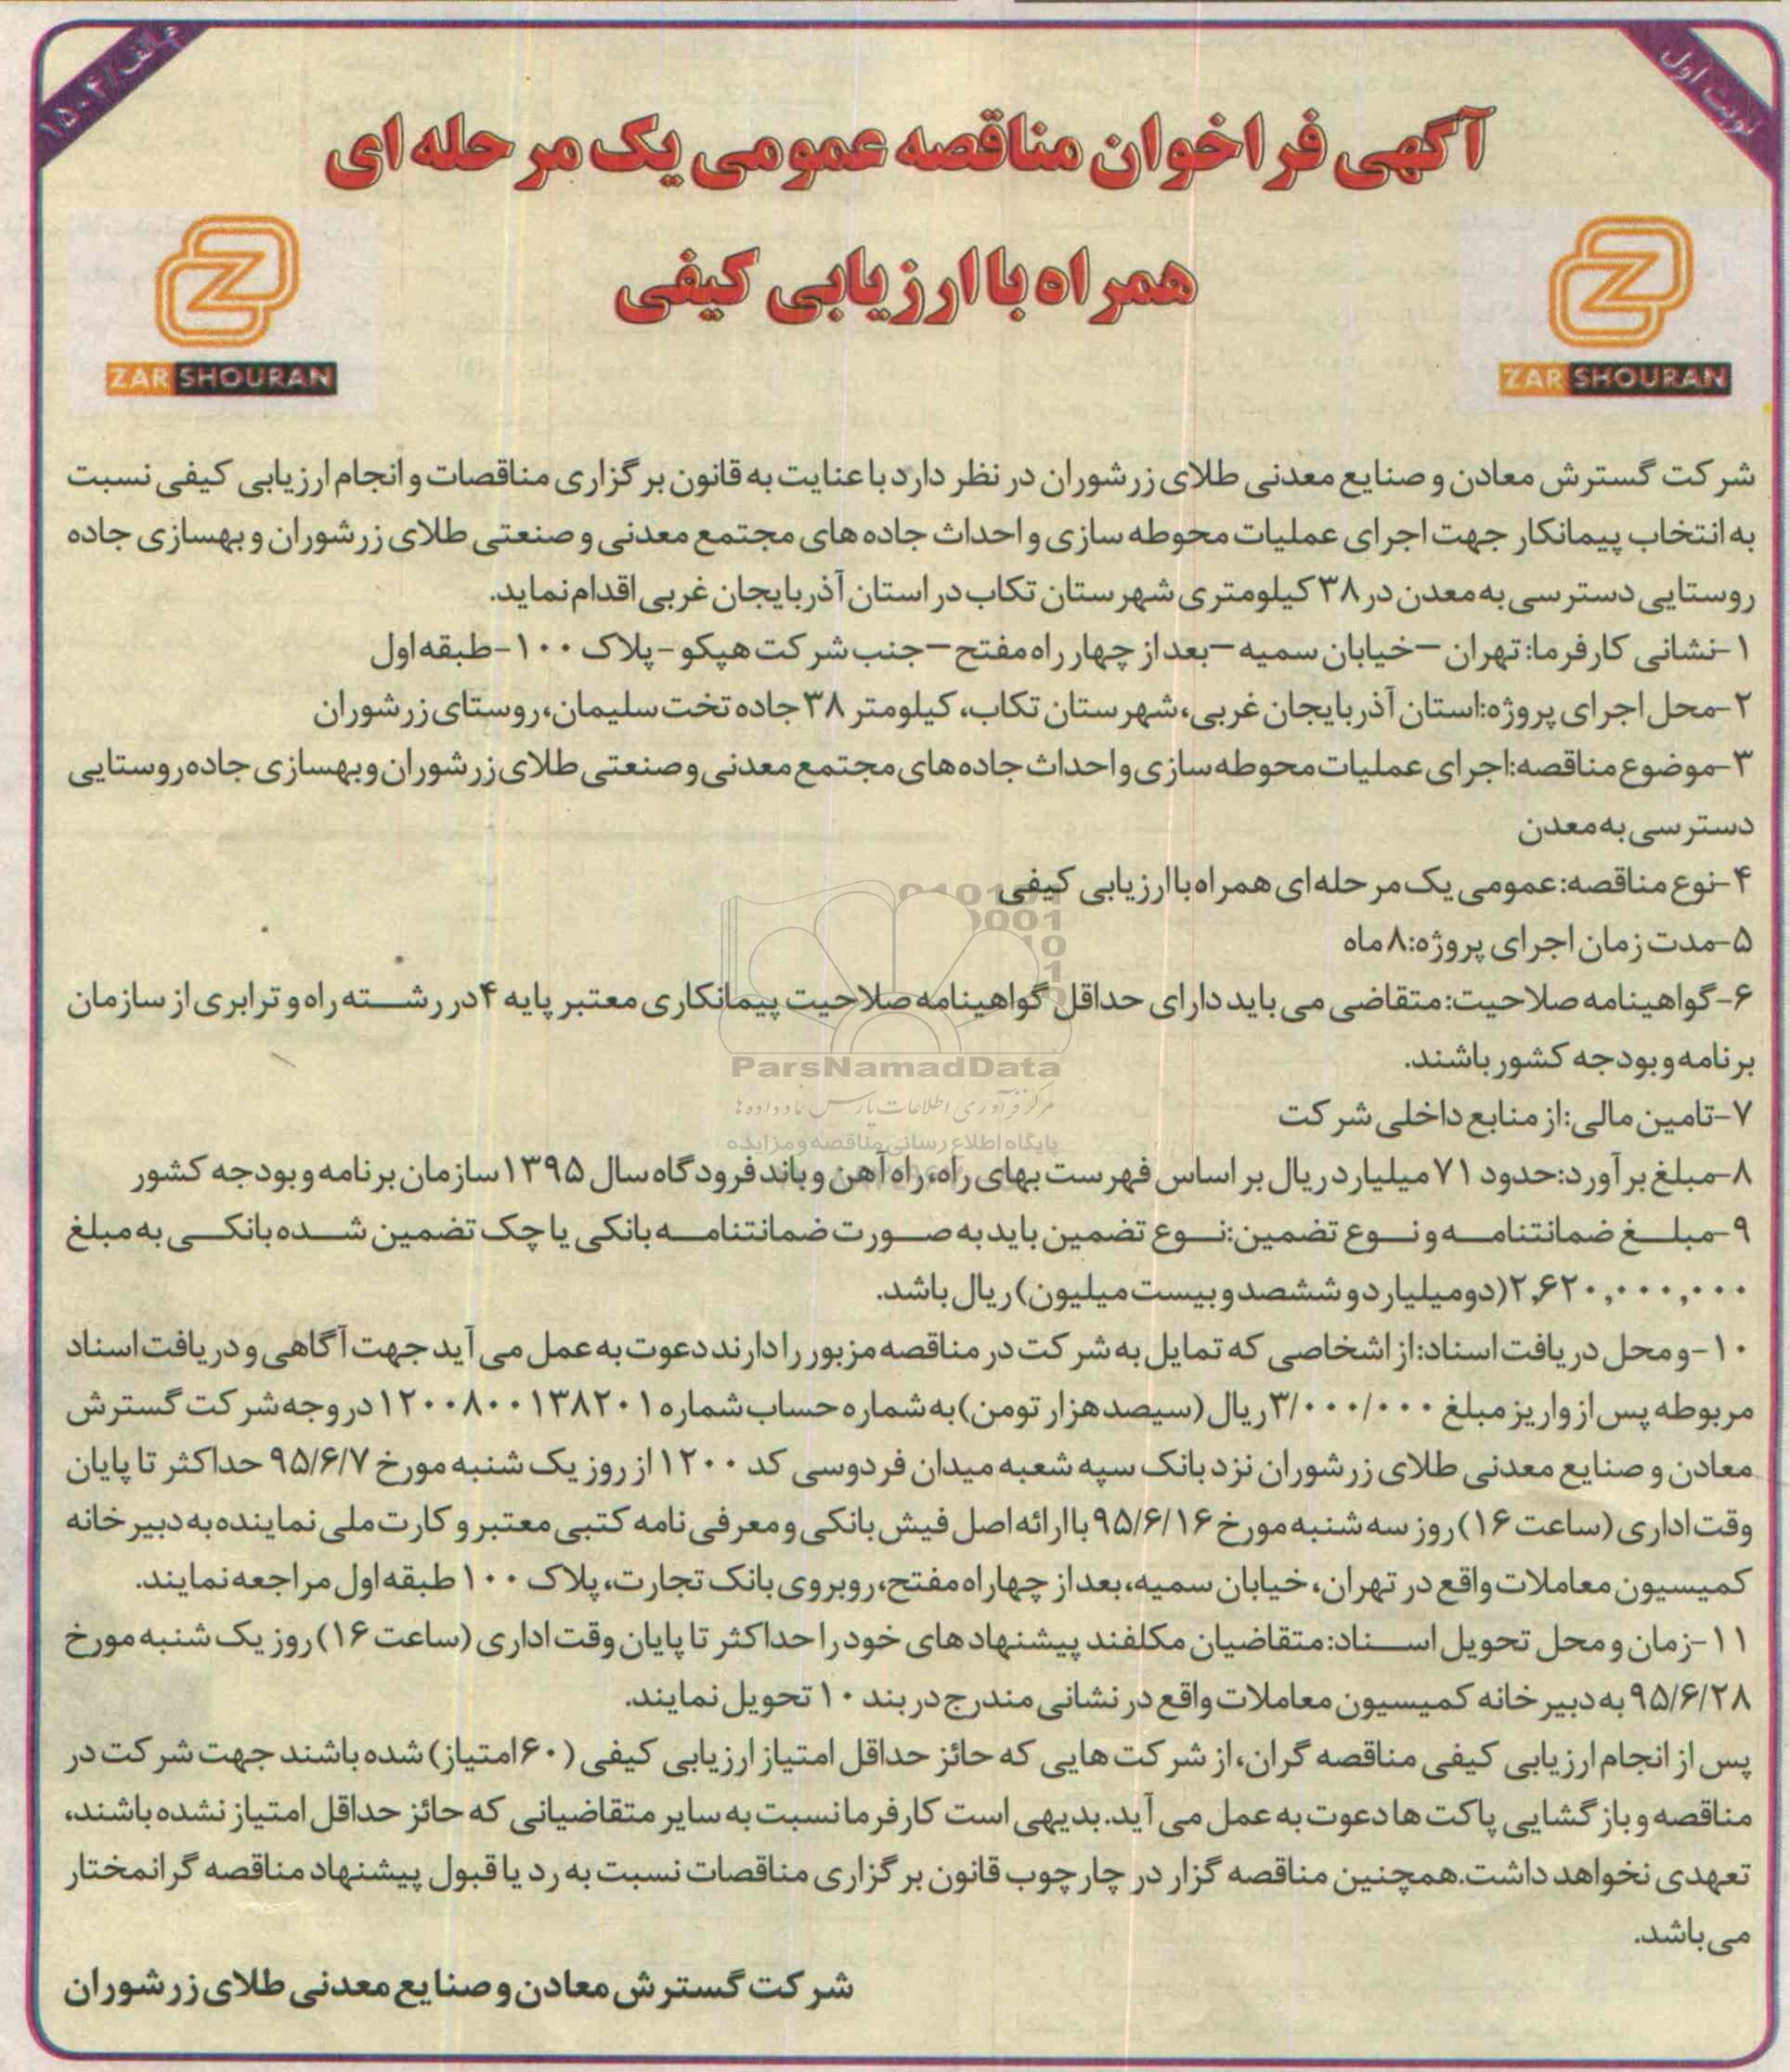 نوبت اول
م الف/۱۵۰۴
آگهی فراخوان مناقصه عمومی یک مرحله ای
همراه با ارزیابی کیفی
ZAR SHOURAN
ZAR SHOURAN
شرکت گسترش معادن و صنایع معدنی طلای زرشوران در نظر دارد با عنایت به قانون برگزاری مناقصات و انجام ارزیابی کیفی نسبت
به انتخاب پیمانکار جهت اجرای عملیات محوطه سازی و احداث جاده های مجتمع معدنی و صنعتی طلای زرشوران و بهسازی جاده
روستایی دسترسی به معدن در ۳۸ کیلومتری شهرستان تکاب در استان آذربایجان غربی اقدام نماید.
۱-نشانی کارفرما: تهران – خیابان سمیه – بعد از چهار راه مفتح – جنب شرکت هپکو - پلاک ۱۰۰ - طبقه اول
۲-محل اجرای پروژه: استان آذربایجان غربی، شهرستان تکاب، کیلومتر ۳۸ جاده تخت سلیمان، روستای زرشوران
۳-موضوع مناقصه: اجرای عملیات محوطه سازی و احداث جاده های مجتمع معدنی و صنعتی طلای زرشوران و بهسازی جاده روستایی
دسترسی به معدن
۴-نوع مناقصه: عمومی یک مرحله ای همراه با ارزیابی کیفی
۵-مدت زمان اجرای پروژه: ۸ ماه
۶-گواهینامه صلاحیت: متقاضی می باید دارای حداقل گواهینامه صلاحیت پیمانکاری معتبر پایه ۴ در رشته راه و ترابری از سازمان
برنامه و بودجه کشور باشند.
ParsNamadData
مرکز فرآوری اطلاعات پارس نماد داده ها
۷-تامین مالی: از منابع داخلی شرکت
پایگاه اطلاع رسانی مناقصه و مزایده
۸-مبلغ برآورد: حدود ۷۱ میلیارد ریال بر اساس فهرست بهای راه، راه آهن و باند فرودگاه سال ۱۳۹۵ سازمان برنامه و بودجه کشور
۹-مبلغ ضمانتنامه و نوع تضمین: نوع تضمین باید به صورت ضمانتنامه بانکی یا چک تضمین شده بانکی به مبلغ
۲,۶۲۰,۰۰۰,۰۰۰ (دو میلیارد و ششصد و بیست میلیون) ریال باشد.
۱۰-و محل دریافت اسناد: از اشخاصی که تمایل به شرکت در مناقصه مزبور را دارند دعوت به عمل می آید جهت آگاهی و دریافت اسناد
مربوطه پس از واریز مبلغ ۳/۰۰۰/۰۰۰ ریال (سیصد هزار تومن) به شماره حساب شماره ۱۲۰۰۸۰۰۱۳۸۲۰۱ در وجه شرکت گسترش
معادن و صنایع معدنی طلای زرشوران نزد بانک سپه شعبه میدان فردوسی کد ۱۲۰۰ از روز یک شنبه مورخ ۹۵/۶/۷ حداکثر تا پایان
وقت اداری (ساعت ۱۶) روز سه شنبه مورخ ۹۵/۶/۱۶ با ارائه اصل فیش بانکی و معرفی نامه کتبی معتبر و کارت ملی نماینده به دبیرخانه
کمیسیون معاملات واقع در تهران، خیابان سمیه، بعد از چهاراه مفتح، روبروی بانک تجارت، پلاک ۱۰۰ طبقه اول مراجعه نمایند.
۱۱-زمان و محل تحویل اسناد: متقاضیان مکلفند پیشنهاد های خود را حداکثر تا پایان وقت اداری (ساعت ۱۶) روز یک شنبه مورخ
۹۵/۶/۲۸ به دبیرخانه کمیسیون معاملات واقع در نشانی مندرج در بند ۱۰ تحویل نمایند.
پس از انجام ارزیابی کیفی مناقصه گران، از شرکت هایی که حائز حداقل امتیاز ارزیابی کیفی (۶۰ امتیاز) شده باشند جهت شرکت در
مناقصه و بازگشایی پاکت ها دعوت به عمل می آید. بدیهی است کارفرما نسبت به سایر متقاضیانی که حائز حداقل امتیاز نشده باشند،
تعهدی نخواهد داشت. همچنین مناقصه گزار در چارچوب قانون برگزاری مناقصات نسبت به رد یا قبول پیشنهاد مناقصه گرانمختار
می باشد.
شرکت گسترش معادن و صنایع معدنی طلای زرشوران